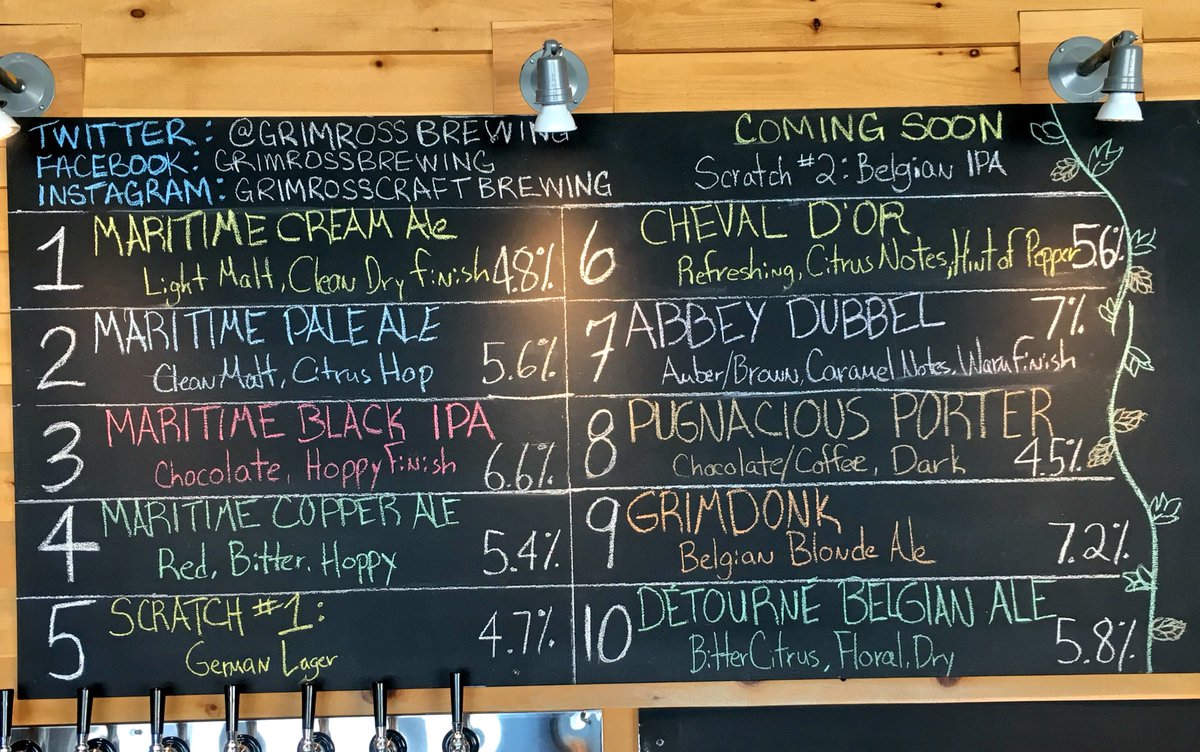 TWITTER: @GRIMROSS BREWING
FACEBOOK: GRIMROSSBREWING
INSTAGRAM: GRIMROSSCRAFTBREWING
COMING SOON
Scratch #2: Belgian IPA
1 MARITIME CREAM Ale
Light Malt, Clean Dry finish 4.8%
2 MARITIME PALE ALE
Clean Malt, Citrus Hop 5.6%
3 MARITIME BLACK IPA
Chocolate, Hoppy Finish 6.6%
4 MARITIME COPPER ALE
Red, Bitter, Hoppy 5.4%
5 SCRATCH #1:
German Lager 4.7%
6 CHEVAL D'OR
Refreshing, Citrus Notes, Hint of Pepper 5.6%
7 ABBEY DUBBEL 7%
Amber/Brown, Caramel Notes, Warm Finish
8 PUGNACIOUS PORTER
Chocolate/Coffee, Dark 4.5%
9 GRIMDONK
Belgian Blonde Ale 7.2%
10 DÉTOURNÉ BELGIAN ALE
Bitter Citrus, Floral, Dry 5.8%